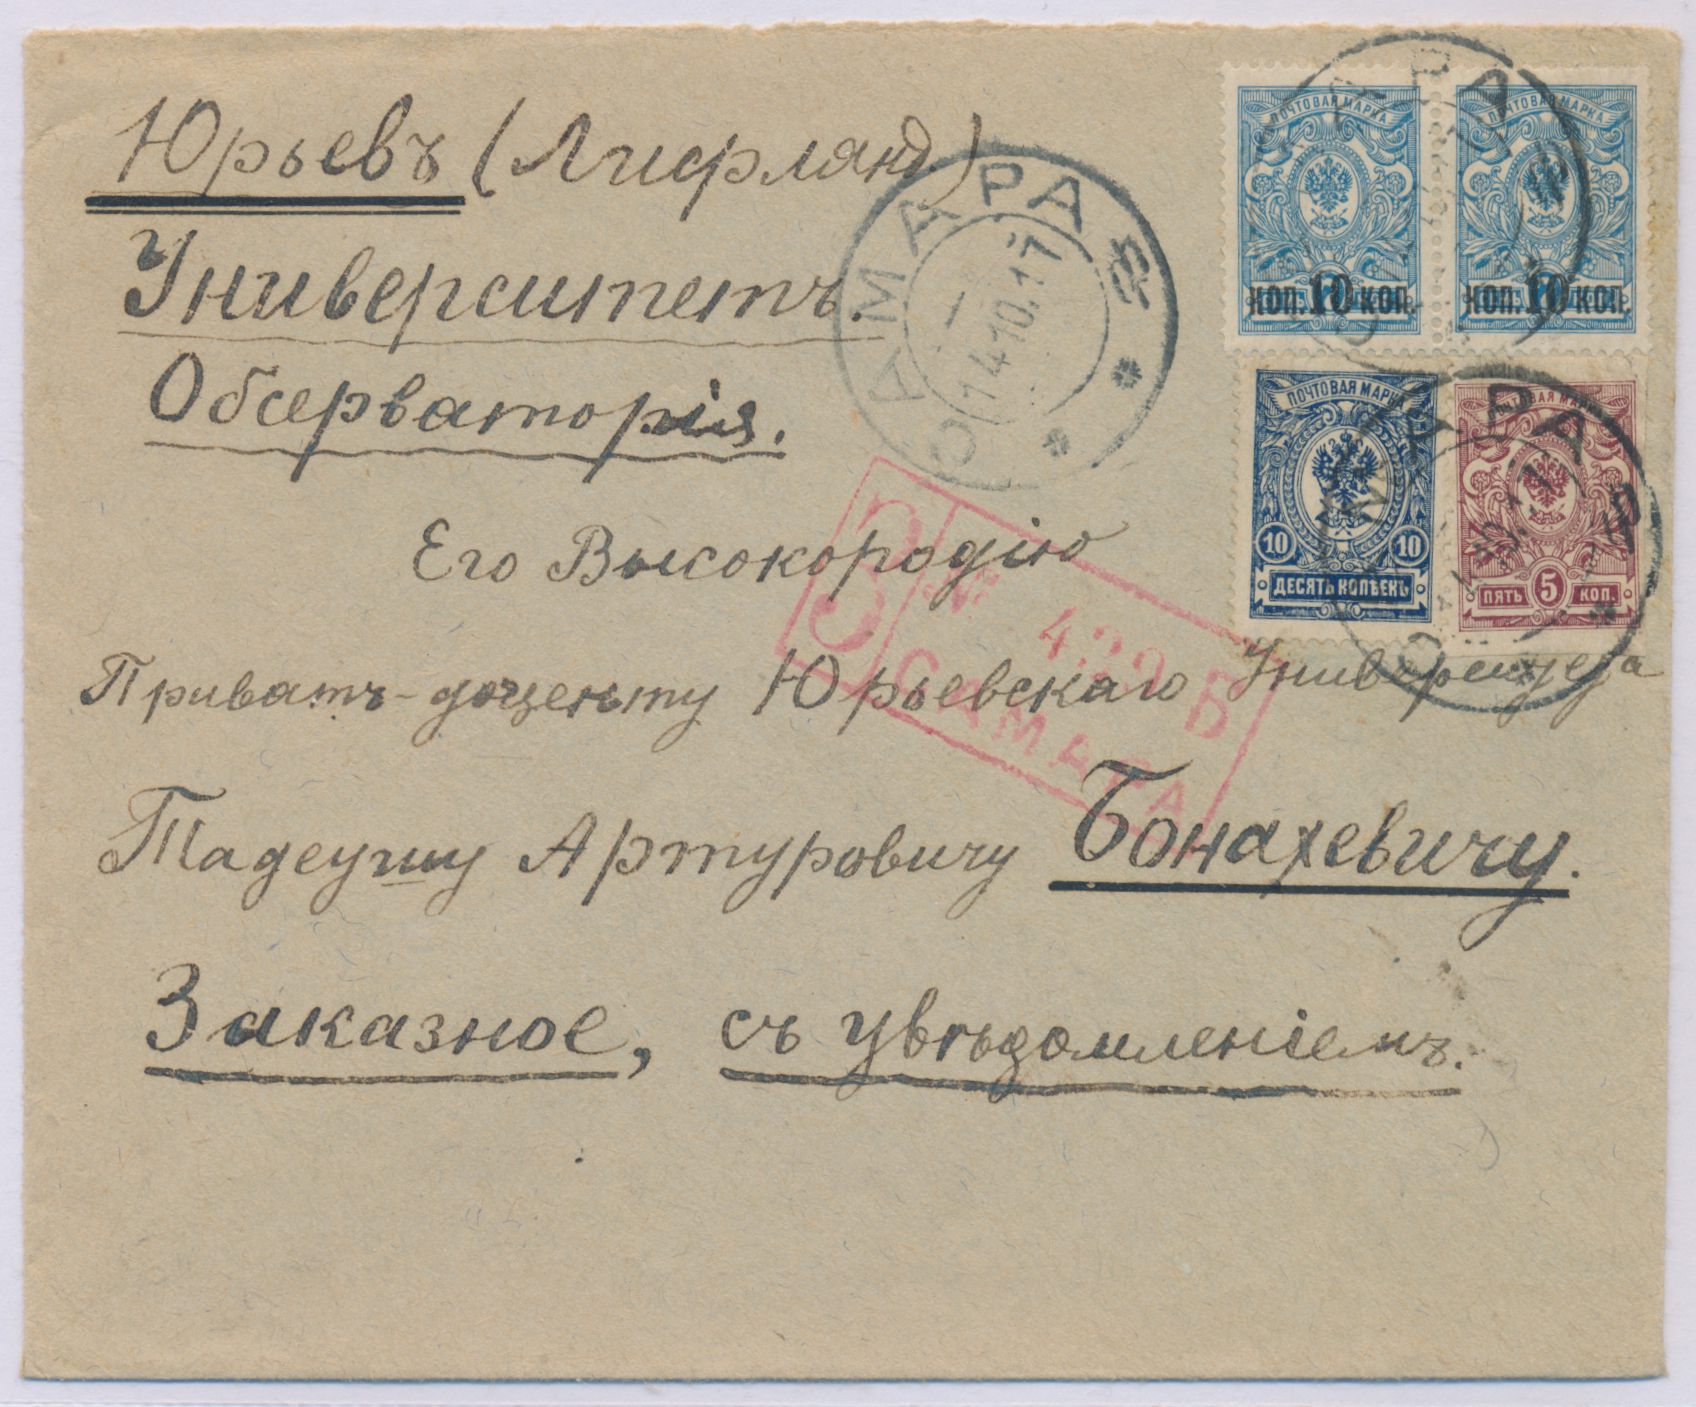 Юрьевъ (Лифлянд.)
Университетъ.
Обсерваторія.
Его Высокородію
Приватъ-доценту Юрьевскаго Университета
Тадеушу Артуровичу Бонахевичу.
Заказное, съ увѣдомленіемъ.
САМАРА
14.10.17
З
№
САМАРА
Б
ПОЧТОВАЯ МАРКА
КОП. 10 КОП.
ПОЧТОВАЯ МАРКА
КОП. 10 КОП.
ПОЧТОВАЯ МАРКА
10 10
ДЕСЯТЬ КОПѢЕКЪ
ПОЧТОВАЯ МАРКА
ПЯТЬ 5 КОП.